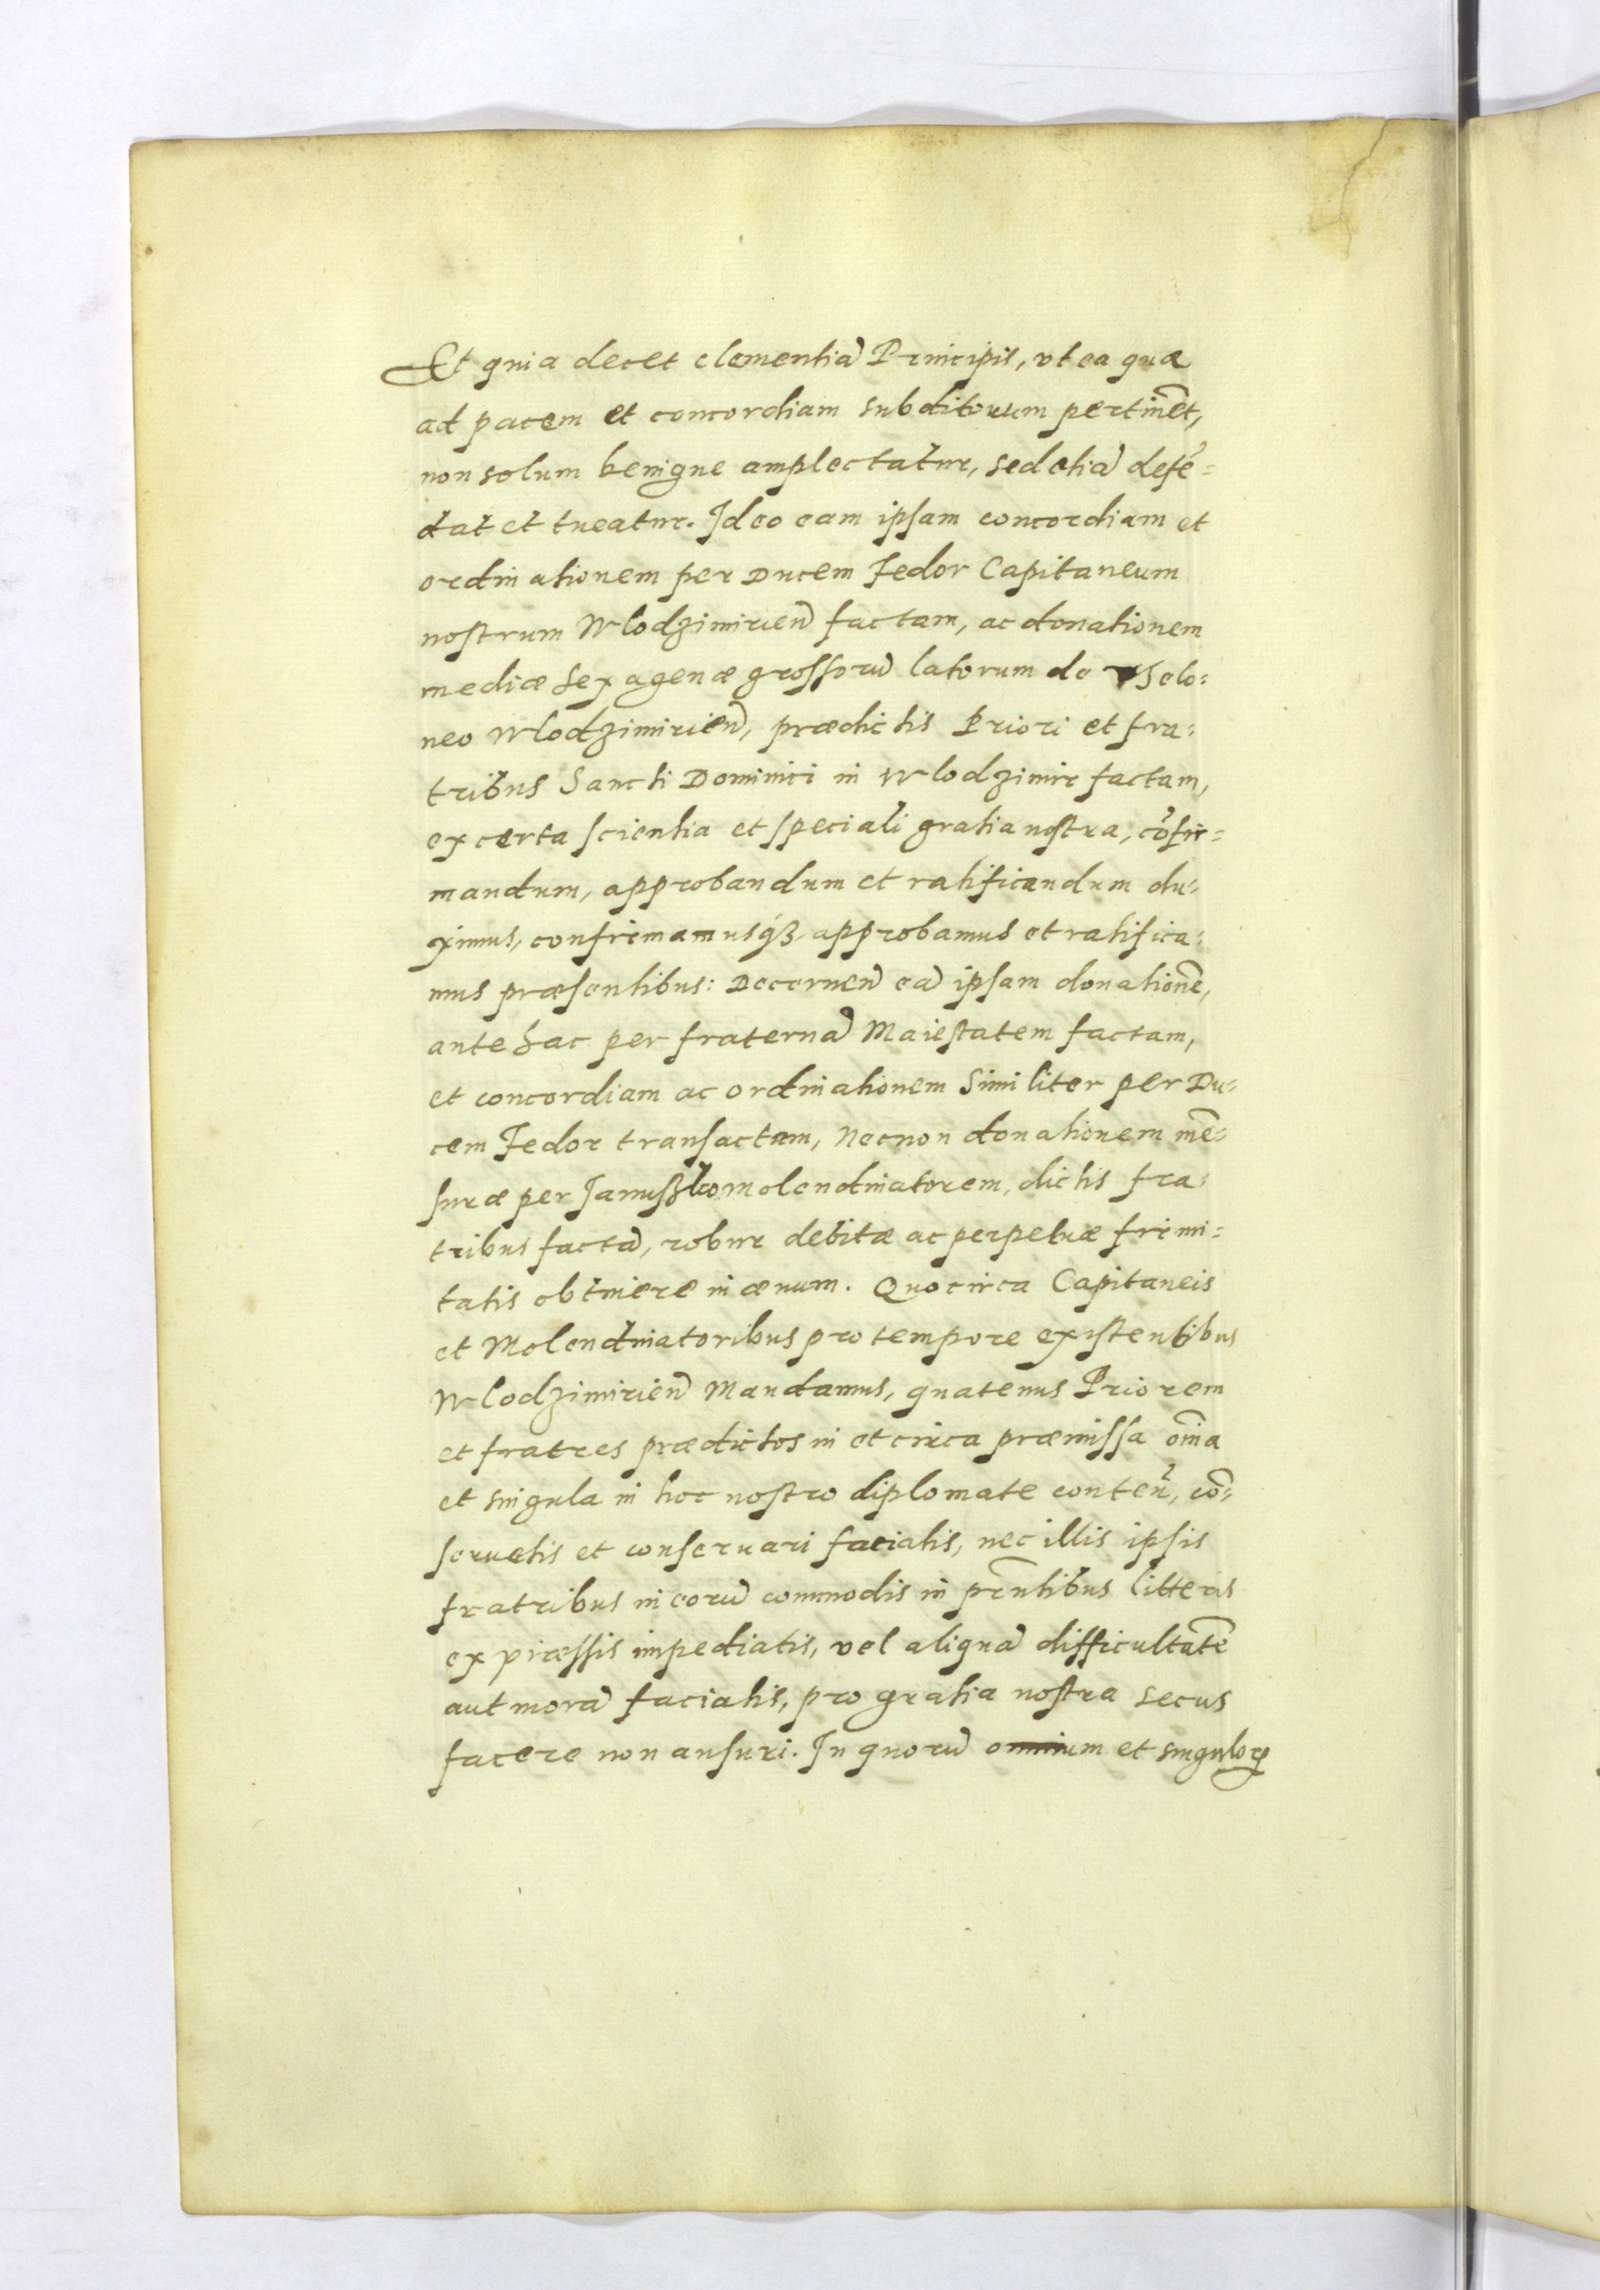 Et quia decet clementiã Principis, vt ea quæ
ad pacem et concordiam subditorum pertinẽt,
non solum benigne amplectatur, sed etiã defẽ=
dat et tueatur. Ideo eam ipsam concordiam et
ordinationem per Ducem Fedor Capitaneum
nostrum Wlodzimirieñ factam, ac donationem
mediæ sexagenæ grossorũ latorum de Telo=
neo Wlodzimirieñ, prædictis Priori et fra=
tribus Sancti Dominici in Wlodzimir factam,
ex certa scientia et speciali gratia nostra, cõfir=
mandum, approbandum et ratificandum du=
ximus, confirmamusq3 approbamus et ratifica=
mus præsentibus: Decerneñ eã ipsam donationẽ,
ante hac per fraternã Maiestatem factam,
et concordiam ac ordinationem similiter per Du=
cem Fedor transactam, Necnon donationem mẽ=
suræ per Janußko molendinatorem, dictis fra=
tribus factã, robur debitæ ac perpetuæ firmi=
tatis obtinere in æuum. Quocirca Capitaneis
et Molendinatoribus pro tempore existentibus
Wlodzimirieñ Mandamus, quatenus Priorem
et fratres prædictos in et circa præmissa õmia
et singula in hoc nostro diplomate conteñ, cõ=
seruetis et conseruari faciatis, nec illis ipsis
fratribus in eorũ commodis in pñtibus litteris
expressis impediatis, vel aliquã difficultatẽ
aut morã faciatis, pro gratia nostra secus
facere non ausuri. In quorũ omnium et singulorꝝ